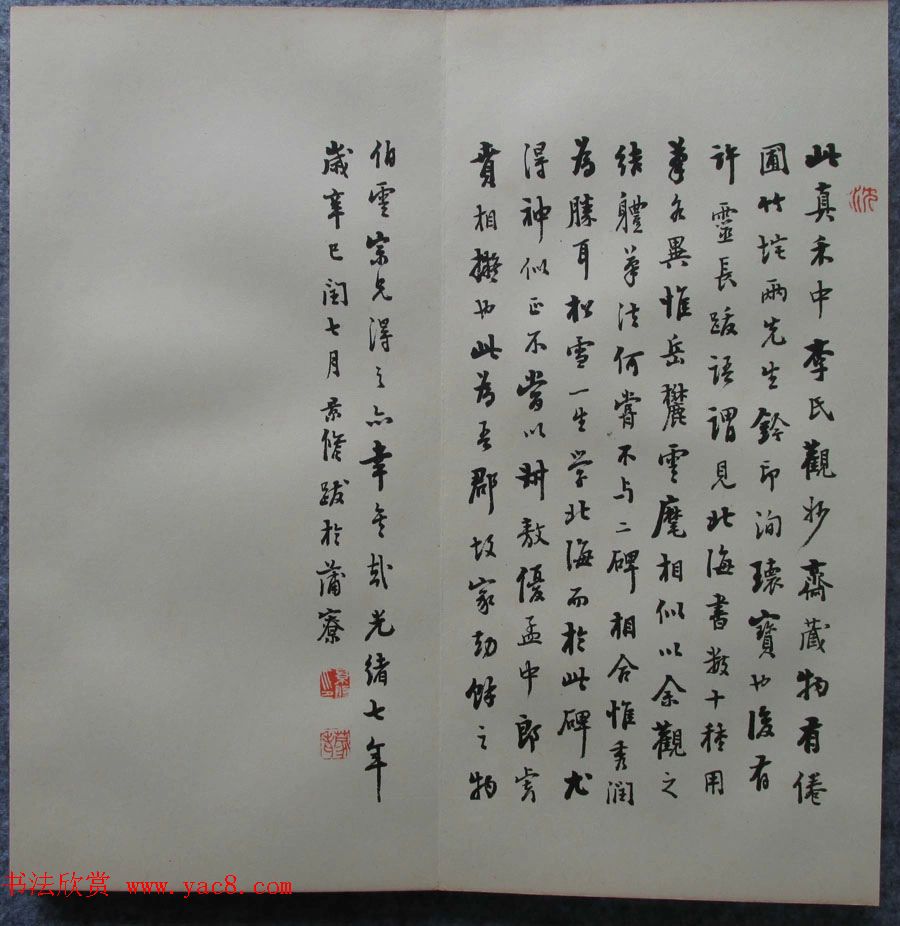 此真禾中李氏觀妙齋藏物有倦
圃竹垞兩先生鈐印洵瓌寶也後有
許靈長跋語謂見北海書數十種用
筆各異惟岳麓雲麾相似以余觀之
結體筆法何嘗不与二碑相合惟秀潤
為勝耳松雪一生學北海而於此碑尤
得神似正不當以叔敖優孟中郎虎
賁相擬也此為吾郡故家劫餘之物
伯雲宗兄得之亦幸矣哉光緒七年
歲辛巳閏七月景脩跋於蒲寮
书法欣赏 www.yac8.com